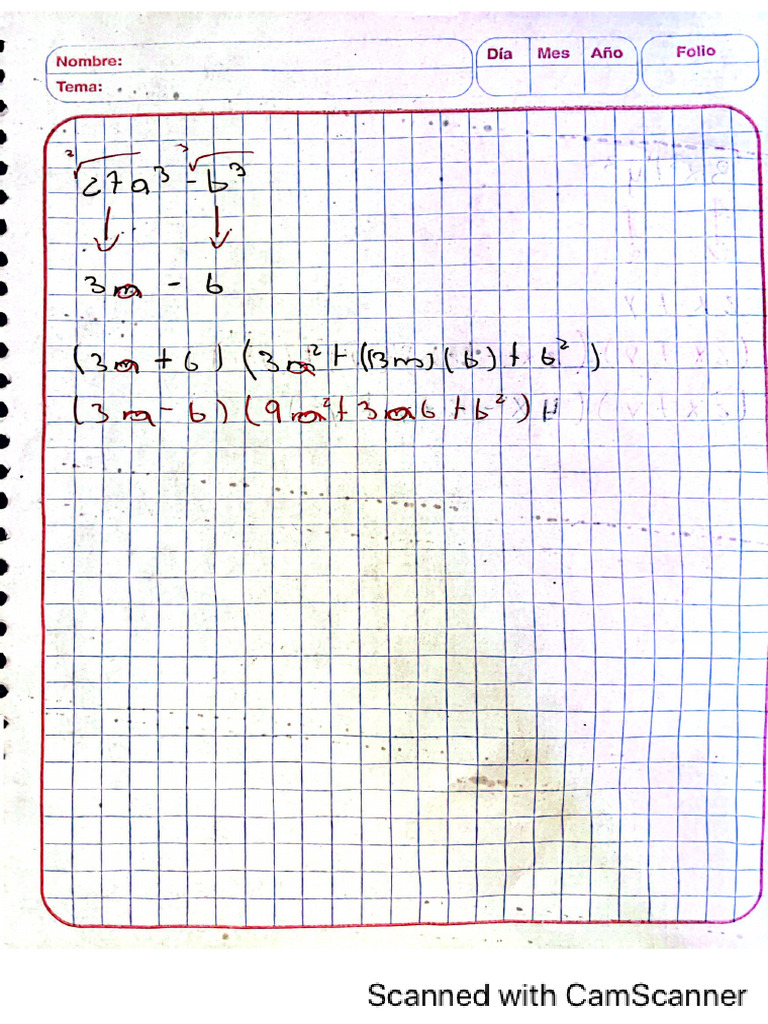 Nombre:
Día Mes Año
Folio
Tema:
∛27a³ - ∛b³
3a - b
(3a + b) (3a² + ((3m) (b) + b²)
(3a - b) (9a² + 3ab + b²)
Scanned with CamScanner